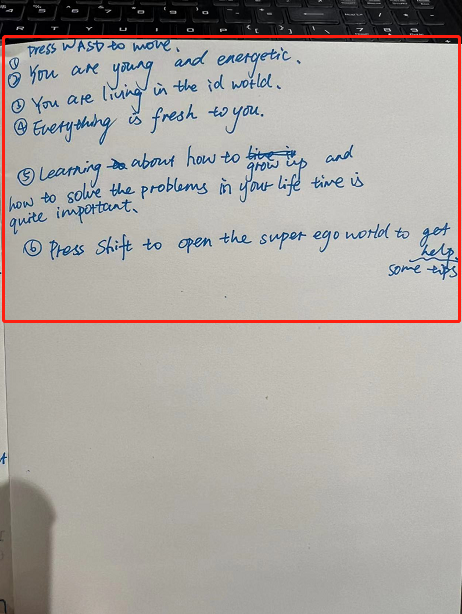 ① Press WASD to move.
② You are young and energetic.
③ You are living in the id world.
④ Everything is fresh to you.
⑤ Learning about how to grow up and
how to solve the problems in your life time is
quite important.
⑥ Press Shift to open the super ego world to get
help.
some tips
R T Y U I O P